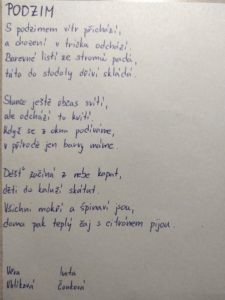 PODZIM
S podzimem vítr přichází,
a chození v tričku odchází.
Barevné listí ze stromů padá,
táta do stodoly dříví skládá.
Slunce ještě občas svítí,
ale odchází tu kvítí
Když se z okna podíváme,
v přírodě jen barvy máme.
Déšť začíná z nebe kapat,
děti do kaluží skákat.
Všichni mokří a špinaví jsou,
doma pak teplý čaj s citrónem pijou.
Věra
Uhlíková
Iveta